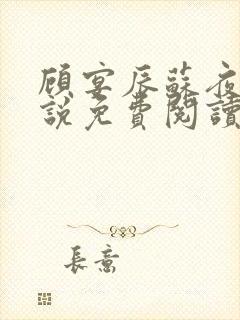 顾宴辰蘇夜
說免費閱讀
長意